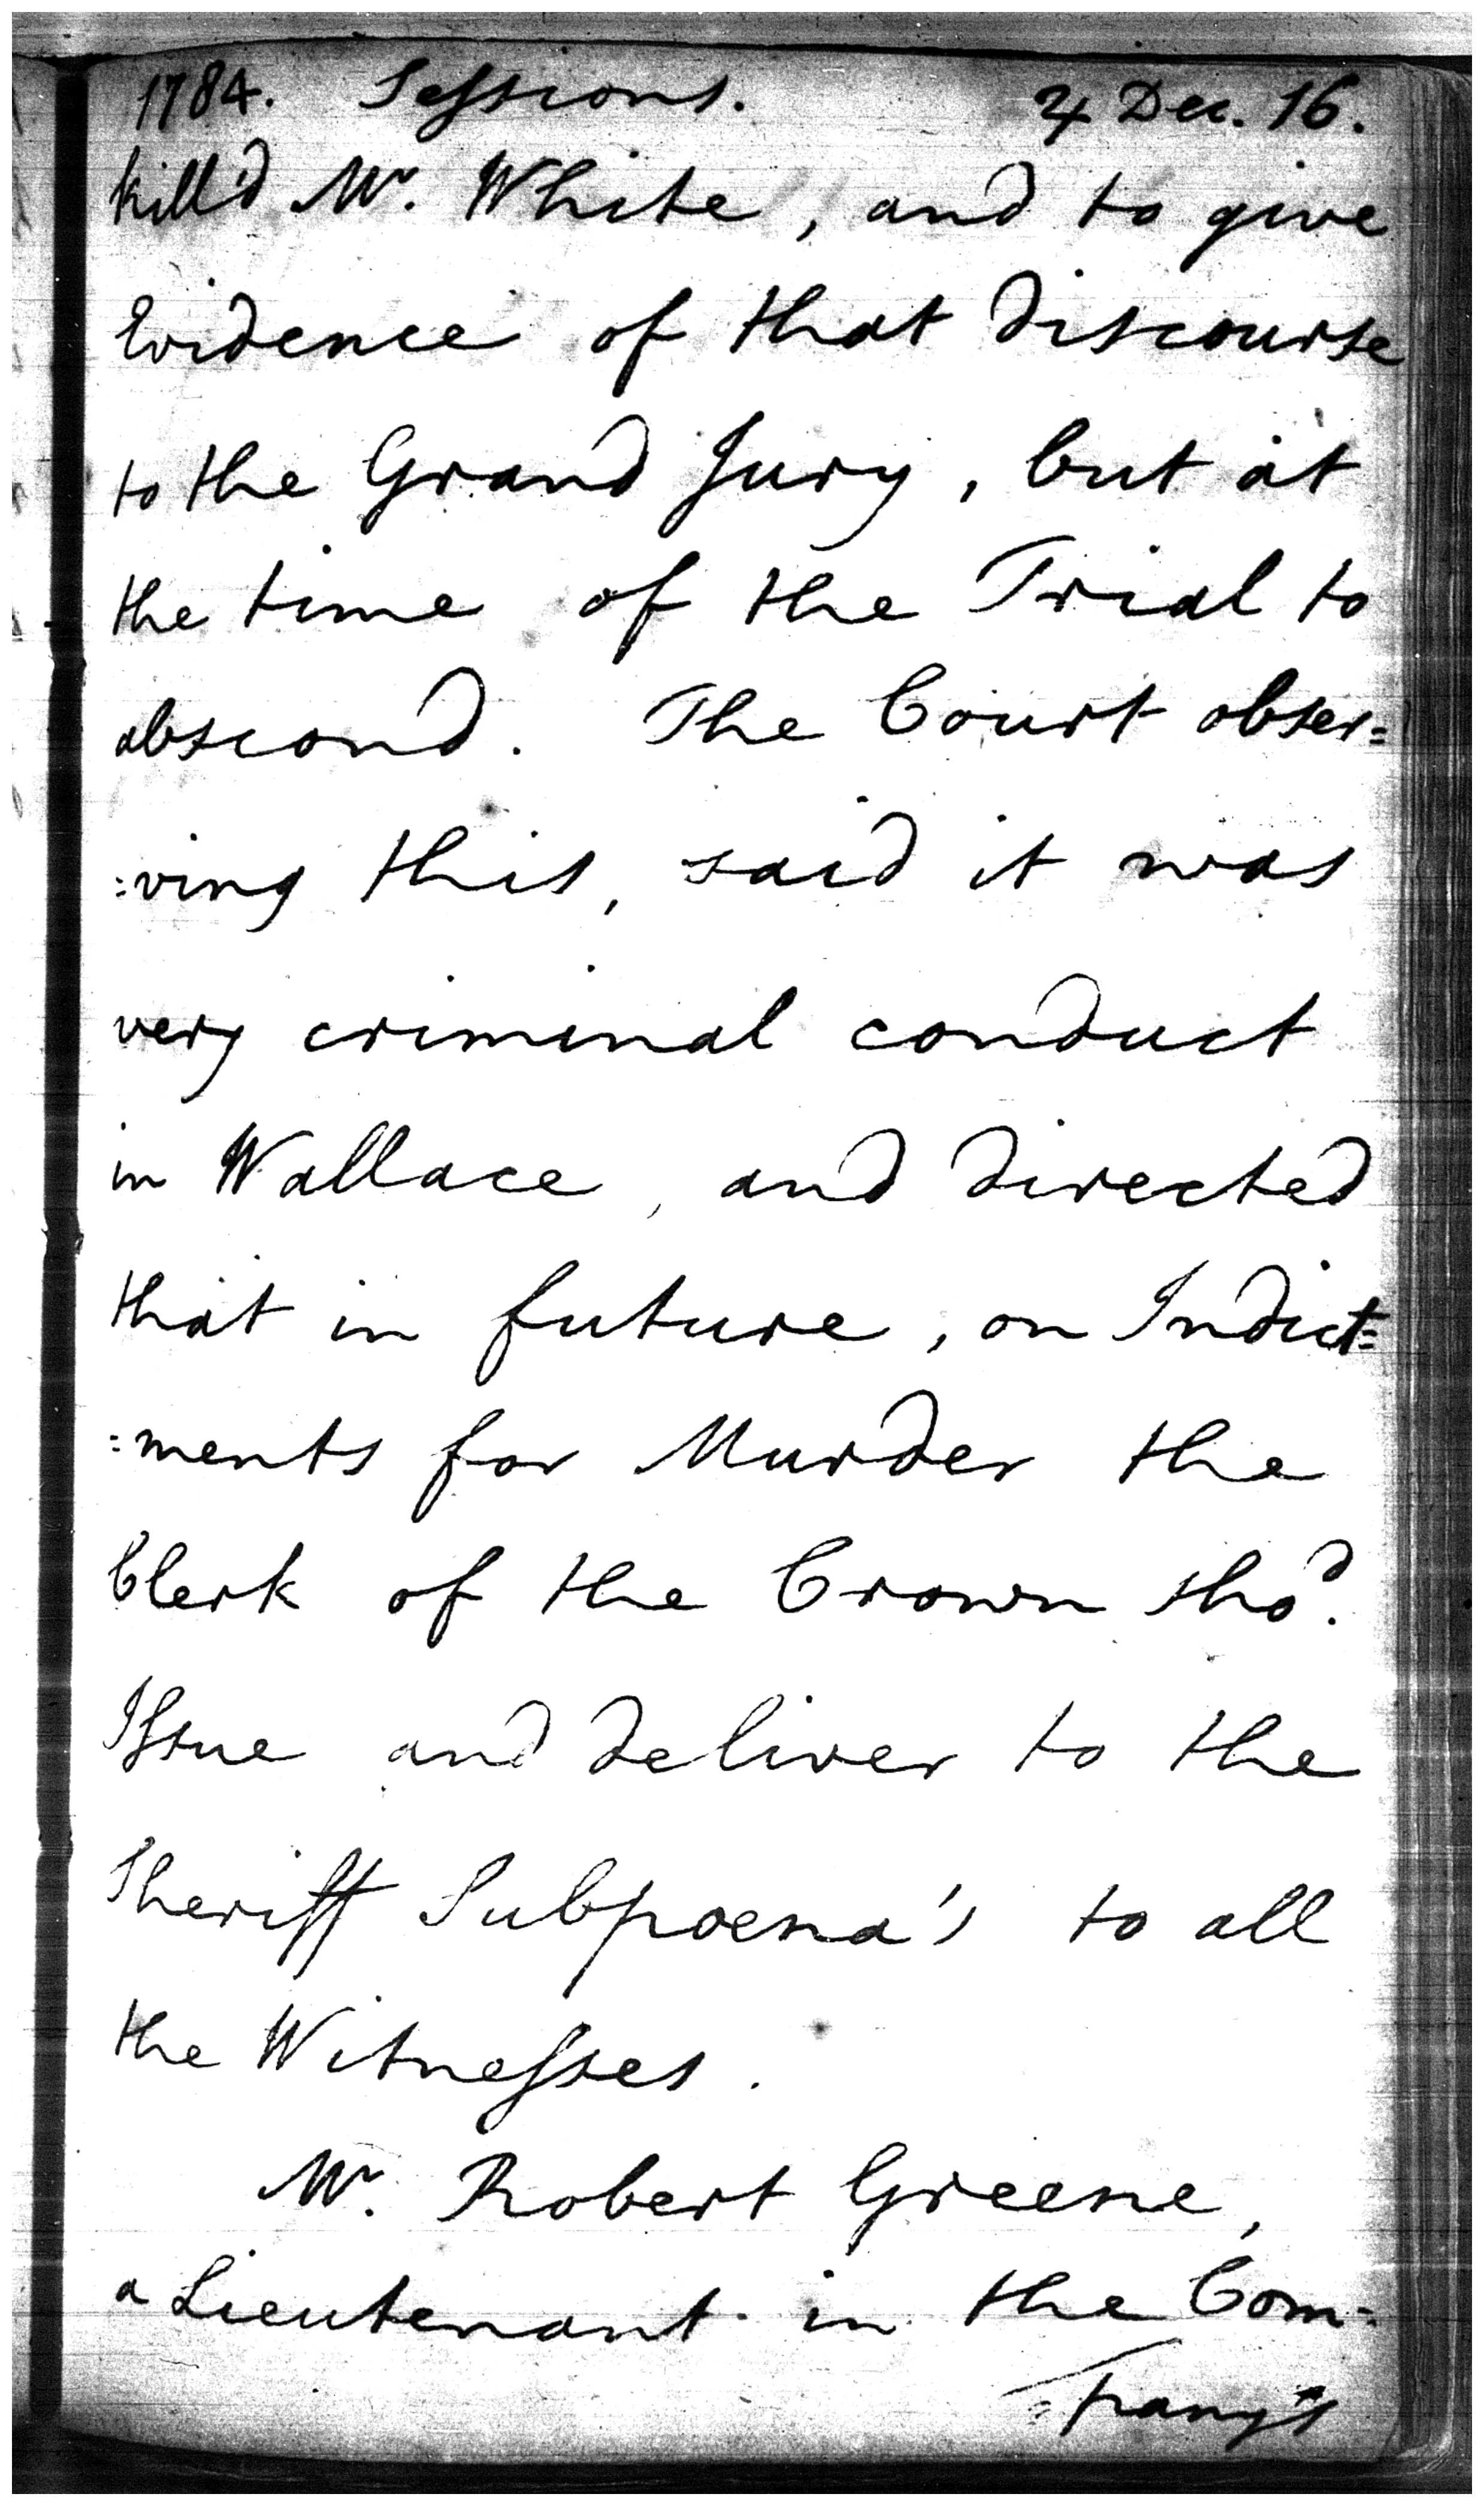 1784. Sessions. 4 Dec. 16.
kill'd Mr. White, and to give
Evidence of that discourse
to the Grand Jury, but at
the time of the Trial to
abscond. The Court obser=
:ving this, said it was
very criminal conduct
in Wallace, and directed
that in future, on Indict=
:ments for Murder the
Clerk of the Crown shod.
Issue and deliver to the
Sheriff Subpoena's to all
the Witnesses.
Mr. Robert Greene,
a Lieutenant in the Com=
=pany's